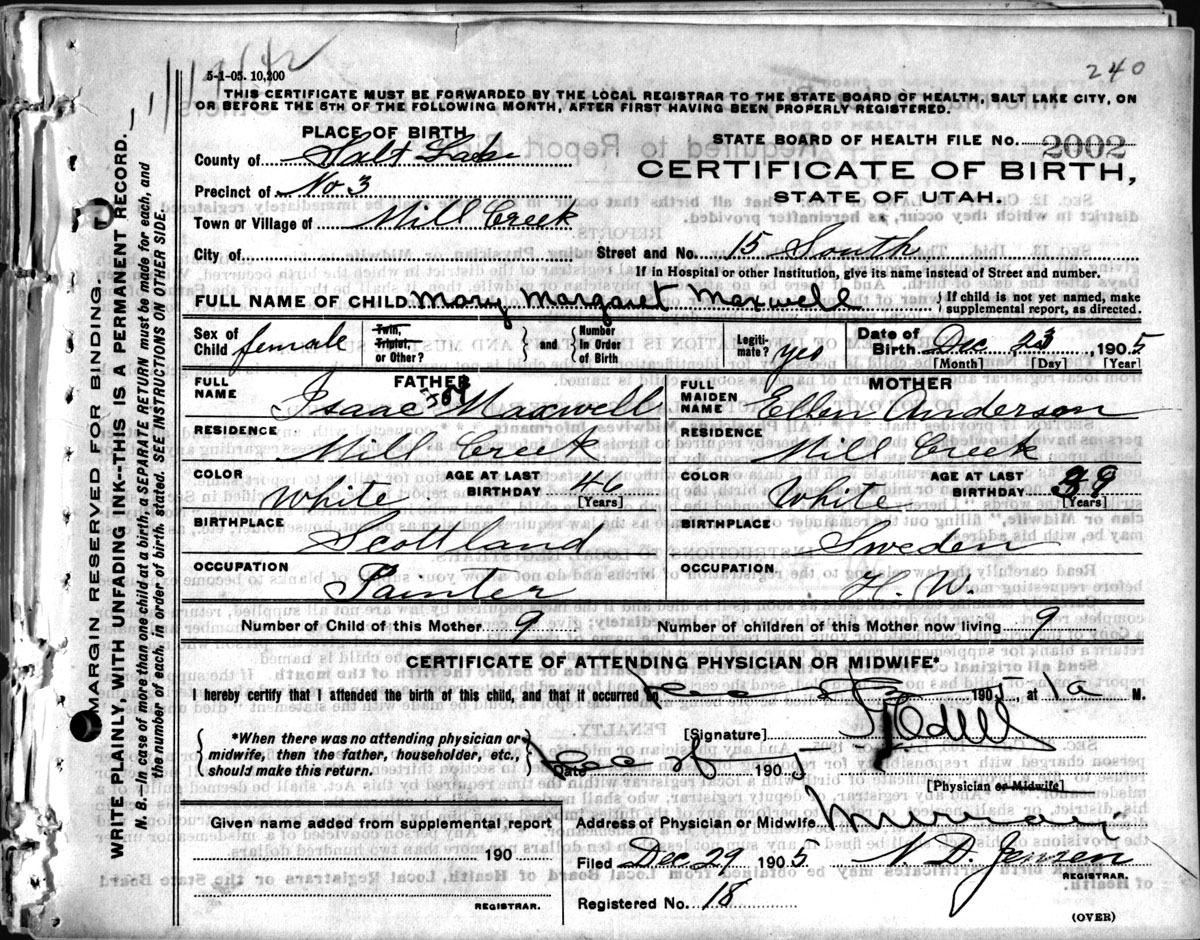 240
5-1-05. 10,200
THIS CERTIFICATE MUST BE FORWARDED BY THE LOCAL REGISTRAR TO THE STATE BOARD OF HEALTH, SALT LAKE CITY, ON
OR BEFORE THE 5TH OF THE FOLLOWING MONTH, AFTER FIRST HAVING BEEN PROPERLY REGISTERED.
PLACE OF BIRTH
STATE BOARD OF HEALTH FILE NO. 2002
County of Salt Lake
CERTIFICATE OF BIRTH,
Precinct of No 3
STATE OF UTAH.
Town or Village of Mill Creek
City of
Street and No. 15 South
If in Hospital or other Institution, give its name instead of Street and number.
FULL NAME OF CHILD Mary Margaret Maxwell
{ If child is not yet named, make
supplemental report, as directed.
Sex of
Child female
Twin,
Triplet,
or Other?
} and {
Number
In Order
of Birth
Legiti-
mate? yes
Date of
Birth Dec 23, 1905
[Month] [Day] [Year]
FATHER
FULL
NAME Isaac Maxwell
RESIDENCE
Mill Creek
COLOR White
AGE AT LAST
BIRTHDAY 46
[Years]
BIRTHPLACE
Scottland
OCCUPATION
Painter
MOTHER
FULL
MAIDEN
NAME Ellen Anderson
RESIDENCE
Mill Creek
COLOR White
AGE AT LAST
BIRTHDAY 39
[Years]
BIRTHPLACE
Sweden
OCCUPATION
H. W.
Number of Child of this Mother 9
Number of children of this Mother now living 9
CERTIFICATE OF ATTENDING PHYSICIAN OR MIDWIFE*
I hereby certify that I attended the birth of this child, and that it occurred Dec 1905, at 1a M.
{ *When there was no attending physician or
midwife, then the father, householder, etc.,
should make this return. }
[Signature]
Date Dec 1905
[Physician or Midwife]
Given name added from supplemental report
190
REGISTRAR.
Address of Physician or Midwife Murray
Filed Dec 29 1905 N. D. Jensen
REGISTRAR.
Registered No. 18
(OVER)
MARGIN RESERVED FOR BINDING.
WRITE PLAINLY, WITH UNFADING INK--THIS IS A PERMANENT RECORD.
N. B.—In case of more than one child at a birth, a SEPARATE RETURN must be made for each, and
the number of each, in order of birth, stated. SEE INSTRUCTIONS ON OTHER SIDE.